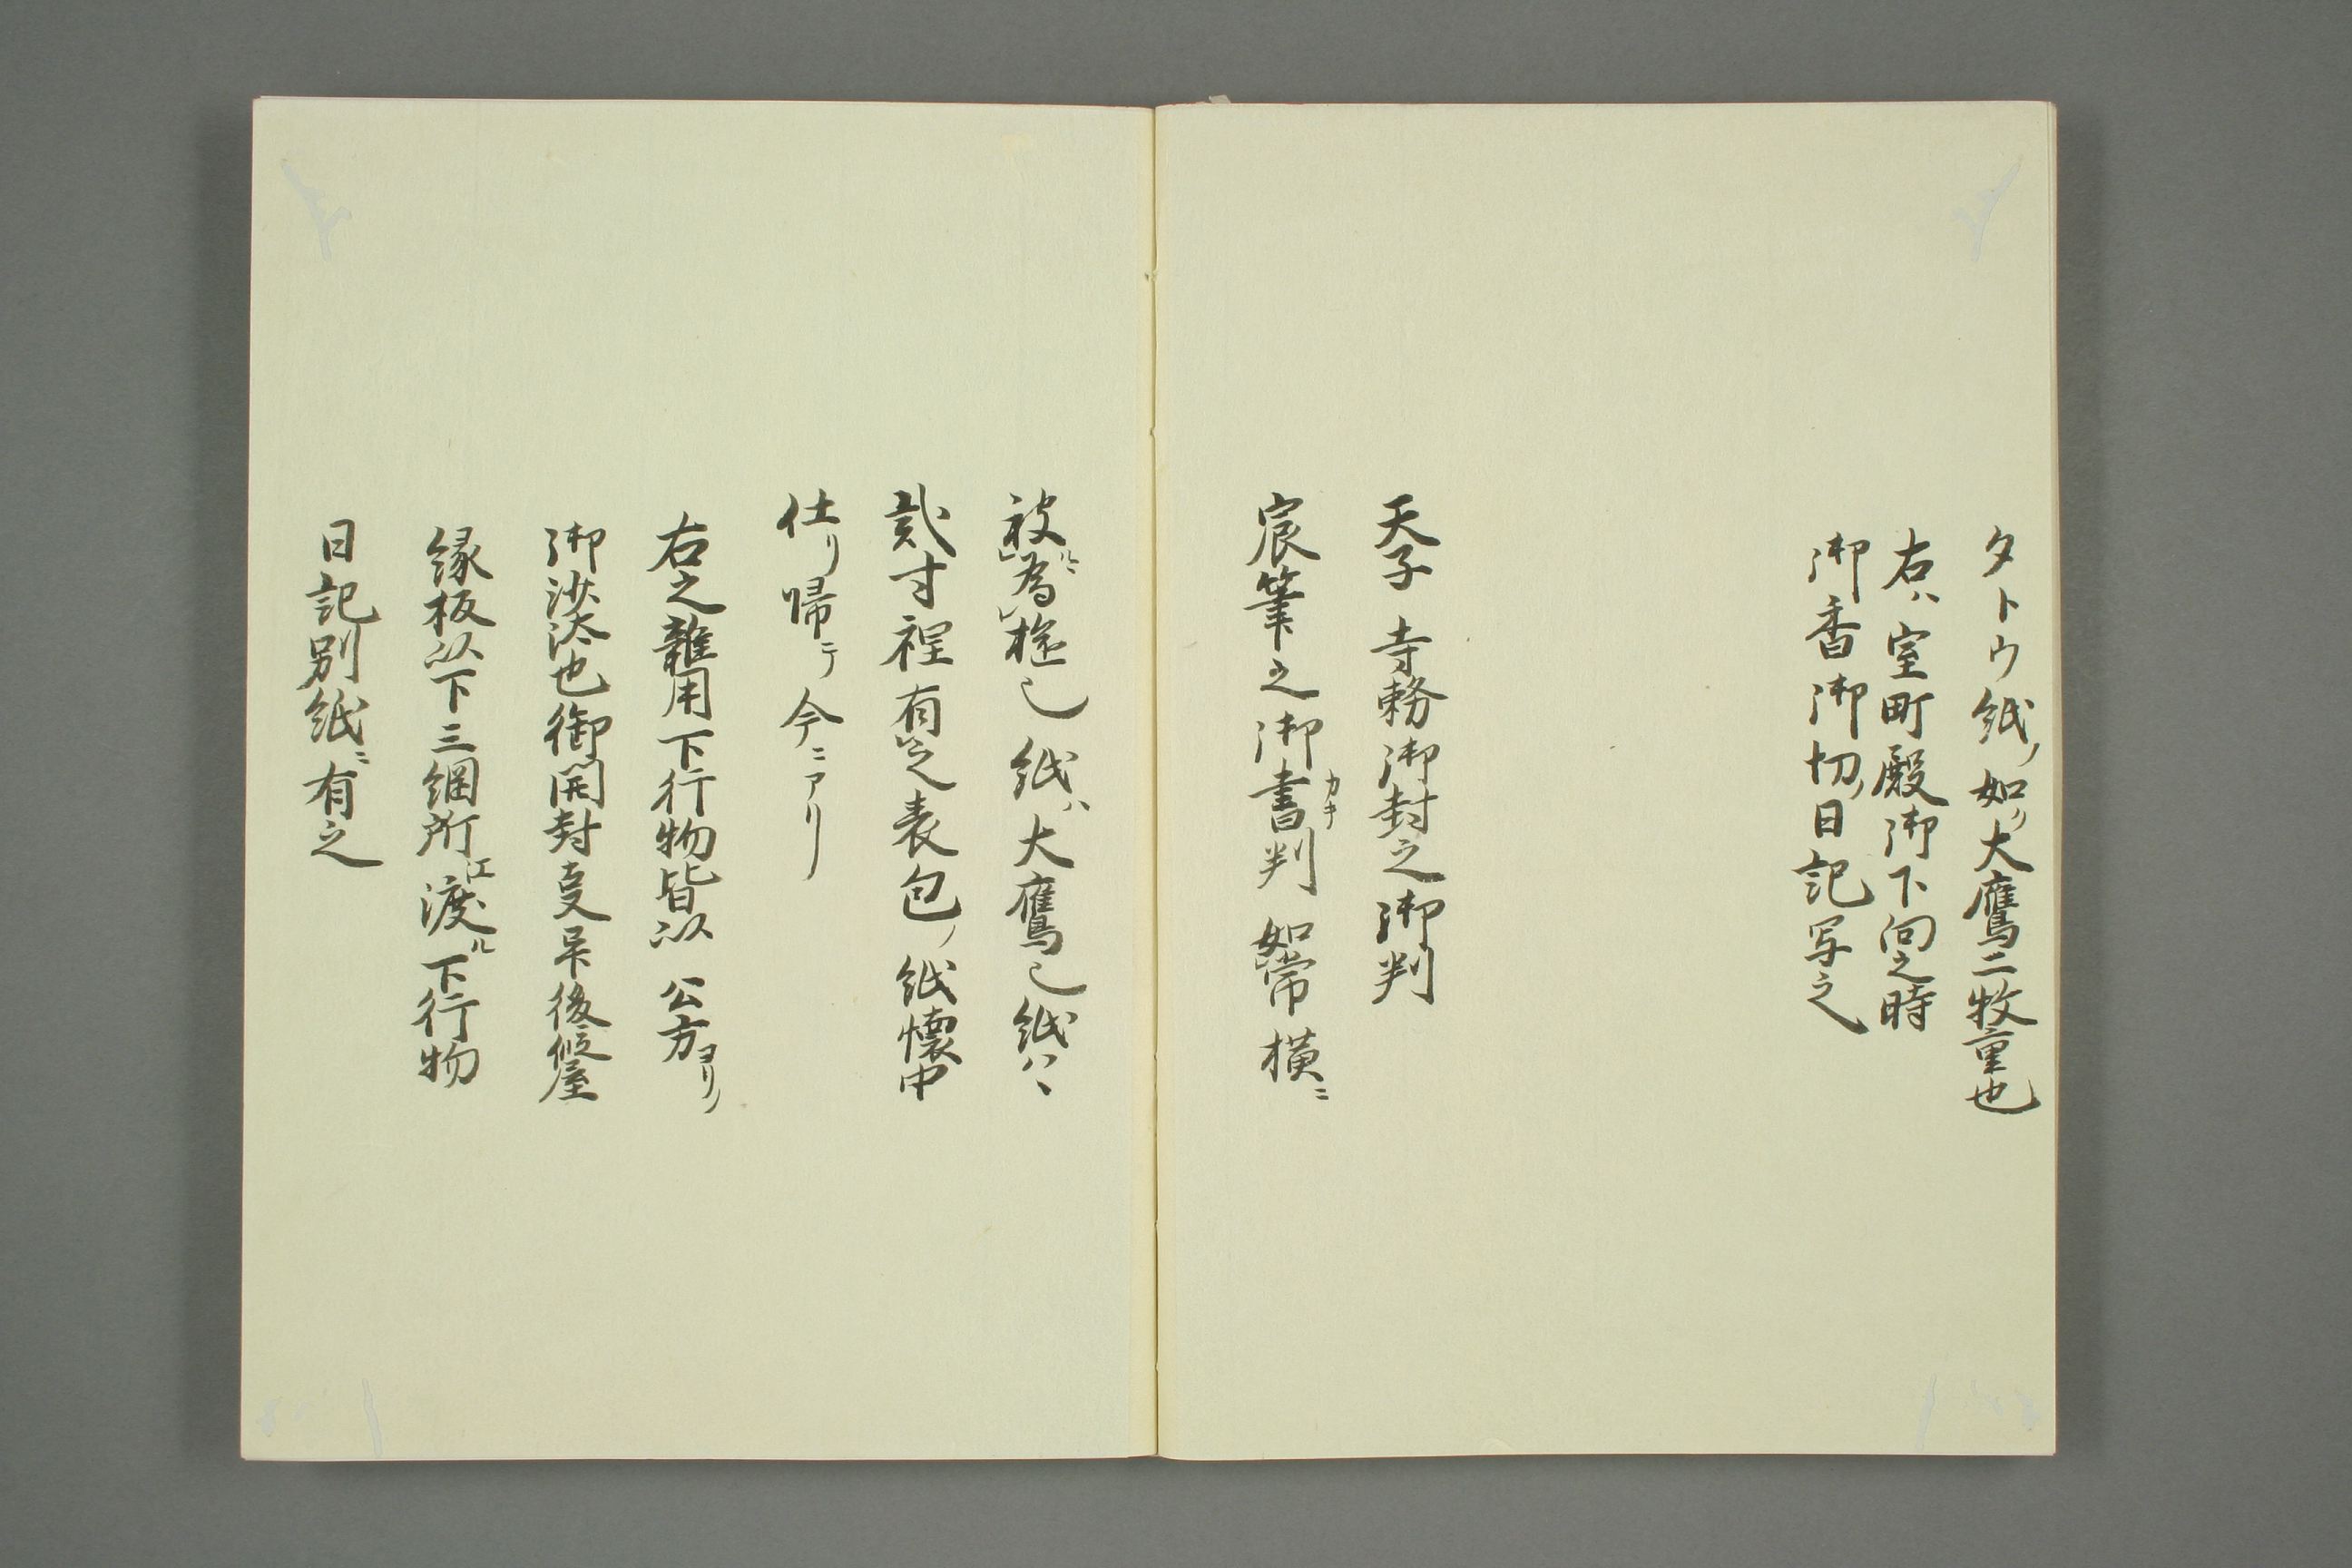 タトウ紙ノ如ク大鷹二牧重也
右ハ室町殿御下向之時
御香御切ノ日記写之
天子 寺務御封之御判
宸筆之御書カキ判如常横ニ
被ルニ為ㇾ 紙ハ大鷹 紙ハヽ
貮寸裎有之表包ノ紙懐中
仕リ帰テ今ニアリ
右之雜用下行物皆以 公方ヨリノ
御沙汰也御開封支早後假屋
縁板以下三綱所江渡ル下行物
日記別紙ニ有之